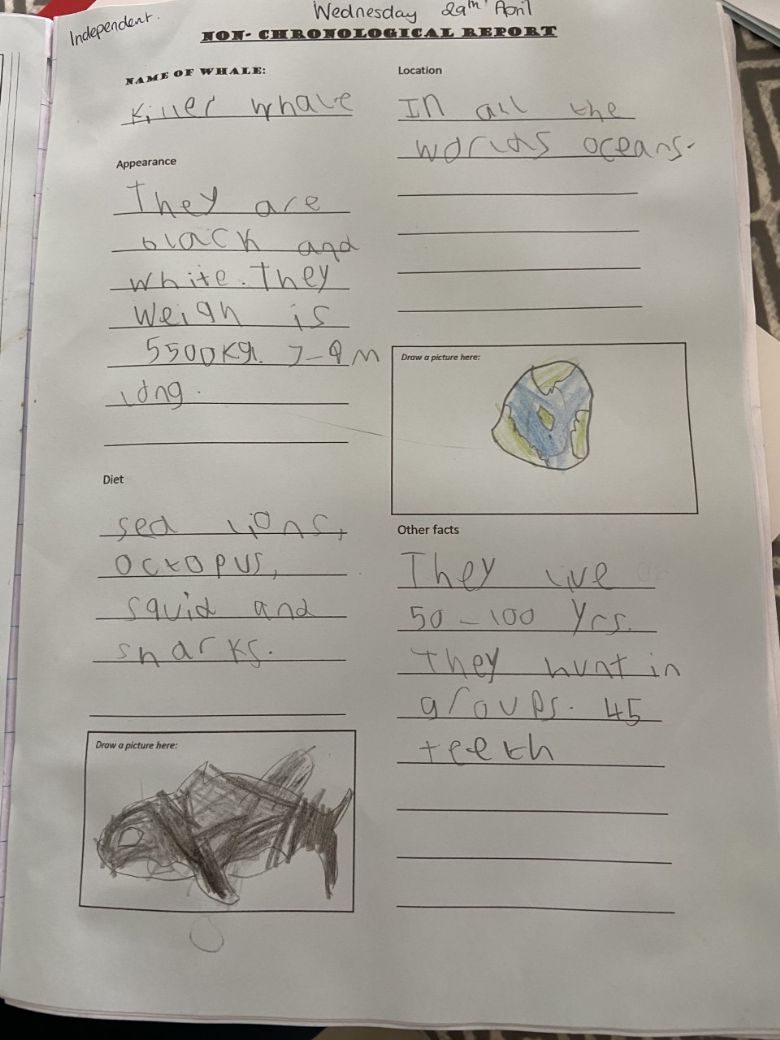 Independent.
Wednesday 29th April
NON-CHRONOLOGICAL REPORT
NAME OF WHALE:
Killer whale
Appearance
They are
black and
white. They
weigh is
5500kg. 7-9m
long.
Diet
sea lions,
octopus,
squid and
sharks.
Draw a picture here:
Location
In all the
worlds oceans.
Draw a picture here:
Other facts
They live
50-100 yrs.
They hunt in
groups. 45
teeth